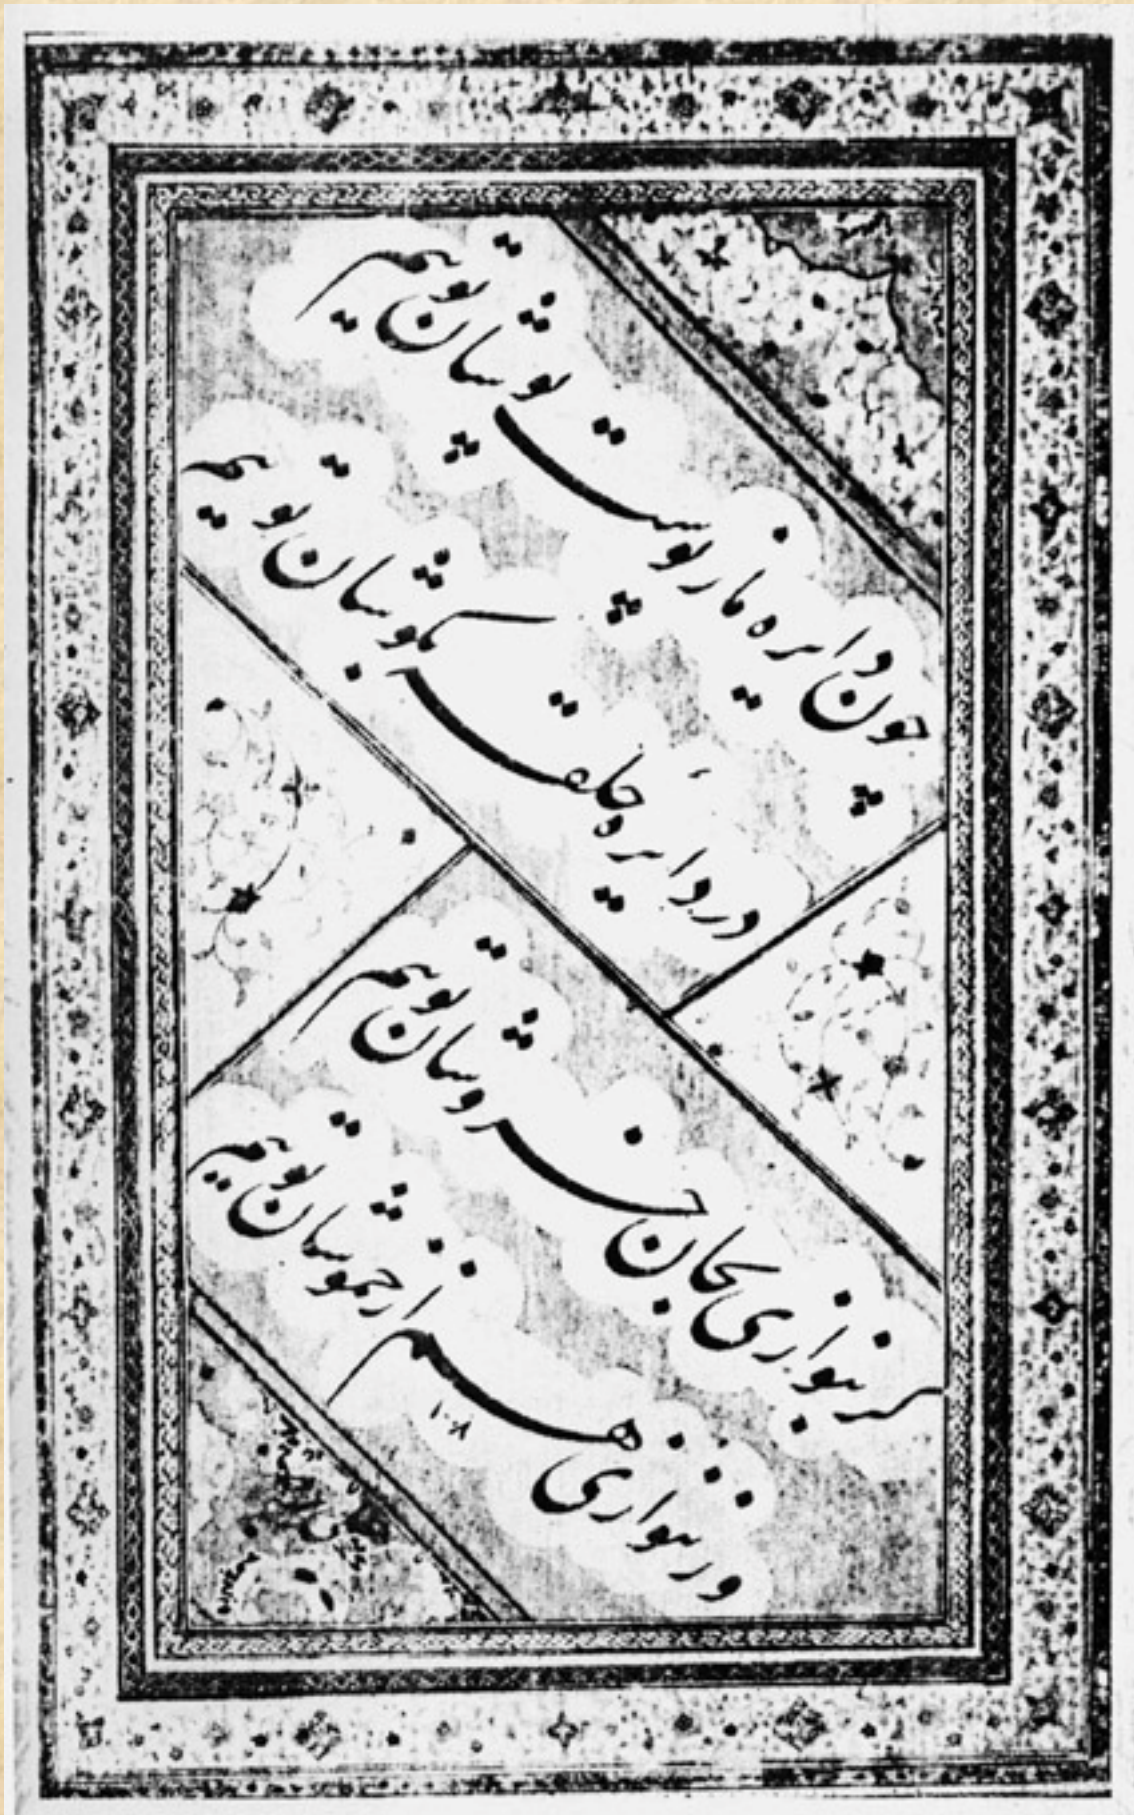 چون دایره ما ز پوست پوشان توییم
در دایره حلقه بگوشان توییم
گر بنوازی بجان خروشان توییم
ور ننوازی هم از خموشان توییم
۱۰۸